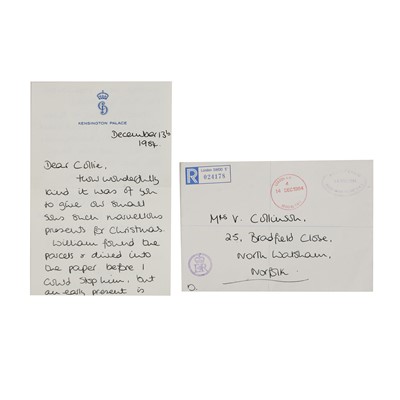 KENSINGTON PALACE
December 13th
1984
Dear Collie,
How wonderfully
kind it was of you
to give our small
sons such marvellous
presents for Christmas.
William found the
parcels & dived into
the paper before I
could stop him, but
an early present is
R
024178
Mrs V. Collinson,
25, Bradfield Close,
North Walsham,
Norfolk.